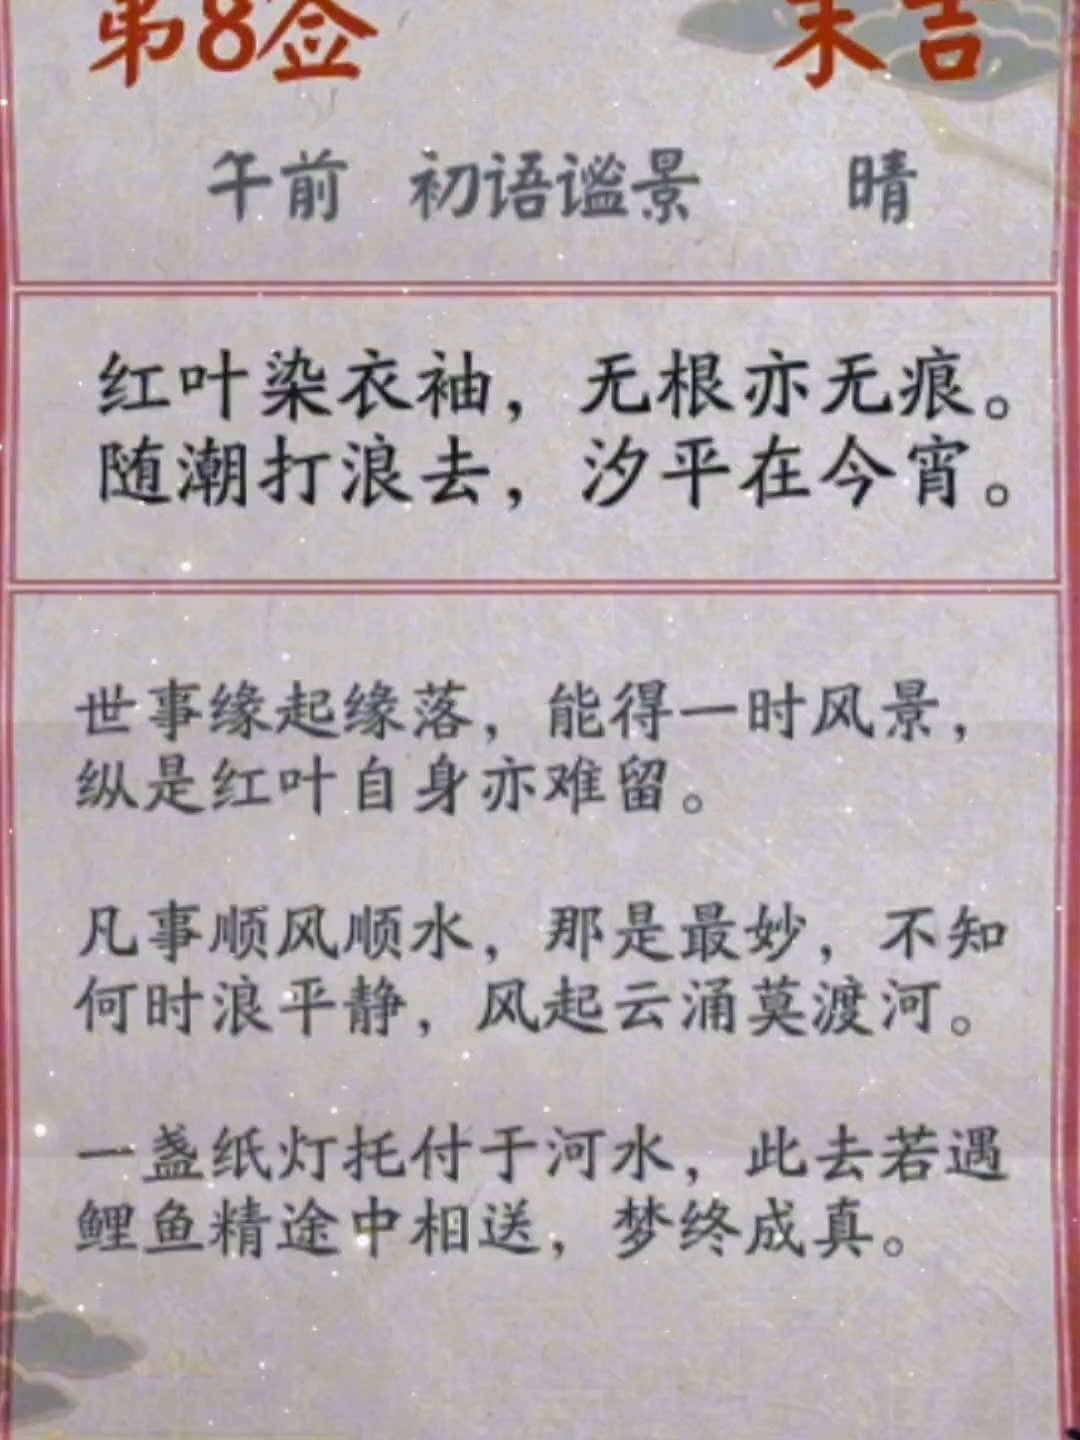 第8签 末吉
午前 初语谧景 晴
红叶染衣袖，无根亦无痕。
随潮打浪去，汐平在今宵。
世事缘起缘落，能得一时风景，
纵是红叶自身亦难留。
凡事顺风顺水，那是最妙，不知
何时浪平静，风起云涌莫渡河。
一盏纸灯托付于河水，此去若遇
鲤鱼精途中相送，梦终成真。